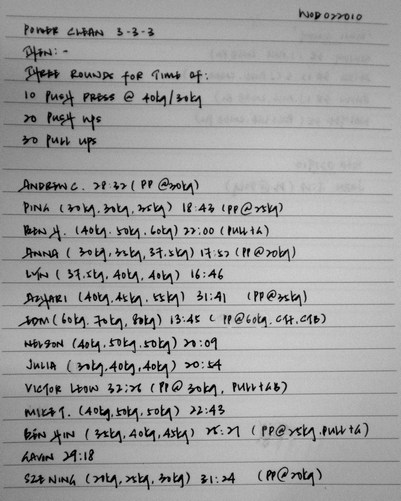 WOD 022010
POWER CLEAN 3-3-3
THEN:-
THREE ROUNDS FOR TIME OF:
10 PUSH PRESS @ 40kg/30kg
20 PUSH UPS
30 PULL UPS
ANDREW C. 28:32 (PP @30kg)
PING (30kg, 30kg, 35kg) 18:43 (PP @25kg)
BEN H. (40kg, 50kg, 60kg) 22:00 (PULL+G)
ANNA (30kg, 35kg, 37.5kg) 17:52 (PP @20kg)
LYN (37.5kg, 40kg, 40kg) 16:46
AZHARI (40kg, 45kg, 55kg) 31:41 (PP @35kg)
(60kg, 70kg, 80kg) 13:45 (PP@60kg, CTB)
NELSON (40kg, 50kg, 50kg) 20:09
JULIA (30kg, 40kg, 40kg) 20:54
VICTOR LEOW 32:26 (PP @ 30kg, PULL+GB)
MIKE T. (40kg, 50kg, 50kg) 22:43
BEN YIN (35kg, 40kg, 45kg) (PP @25kg, PULL+G)
GAVIN 29:18
SZE NING (20kg, 25kg, 30kg) 31:24 (PP @20kg)